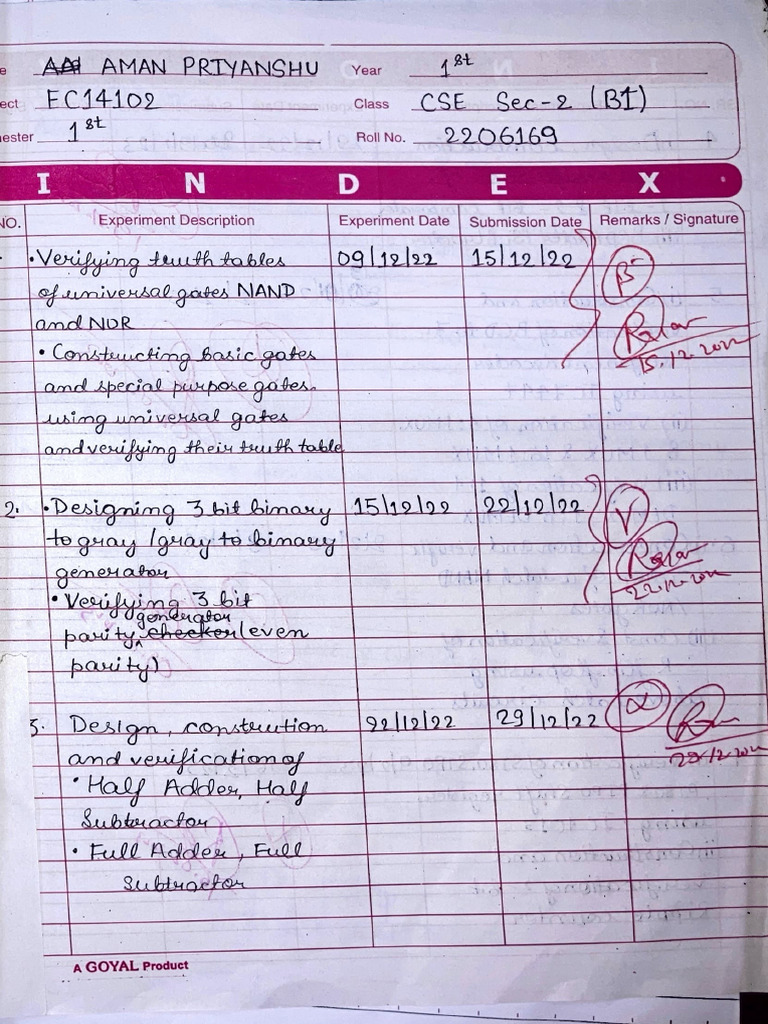 e AMAN PRIYANSHU Year 1st
ect EC14102 Class CSE Sec-2 (B1)
ester 1st Roll No. 2206169
I N D E X
NO. Experiment Description Experiment Date Submission Date Remarks / Signature
• Verifying truth tables 09/12/22 15/12/22
of universal gates NAND
and NOR
• Constructing basic gates 15.12.2022
and special purpose gates
using universal gates
and verifying their truth table
2. • Designing 3 bit binary 15/12/22 22/12/22
to gray /gray to binary
generator 22.12.2022
• Verifying 3 bit
generator
parity checker (even
parity)
3. Design, constrution 22/12/22 29/12/22
and verification of 29.12.2022
• Half Adder, Half
Subtractor
• Full Adder, Full
Subtractor
A GOYAL Product